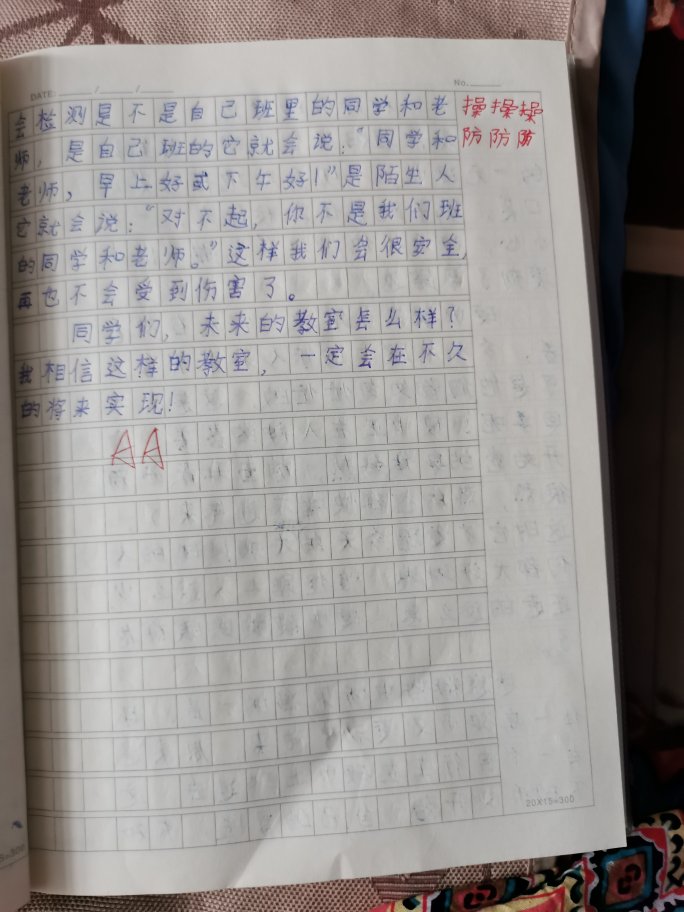 DATE: / /
No.
会检测是不是自己班里的同学和老
师，是自己班的它就会说：“同学和
老师，早上好或下午好！”是陌生人
它就会说：“对不起，你不是我们班
的同学和老师。”这样我们会很安全，
再也不会受到伤害了。
同学们，未来的教室怎么样？
我相信这样的教室，一定会在不久
的将来实现！
操操操
防防防
AA
20X15=300